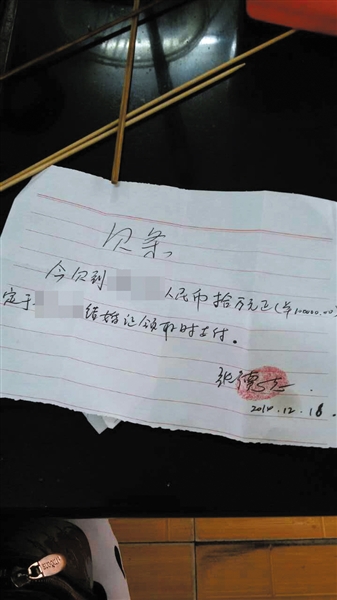 欠条
今欠到 人民币拾万元正(￥100000.00)
定于 结婚证领取时支付。
张德
12.18.